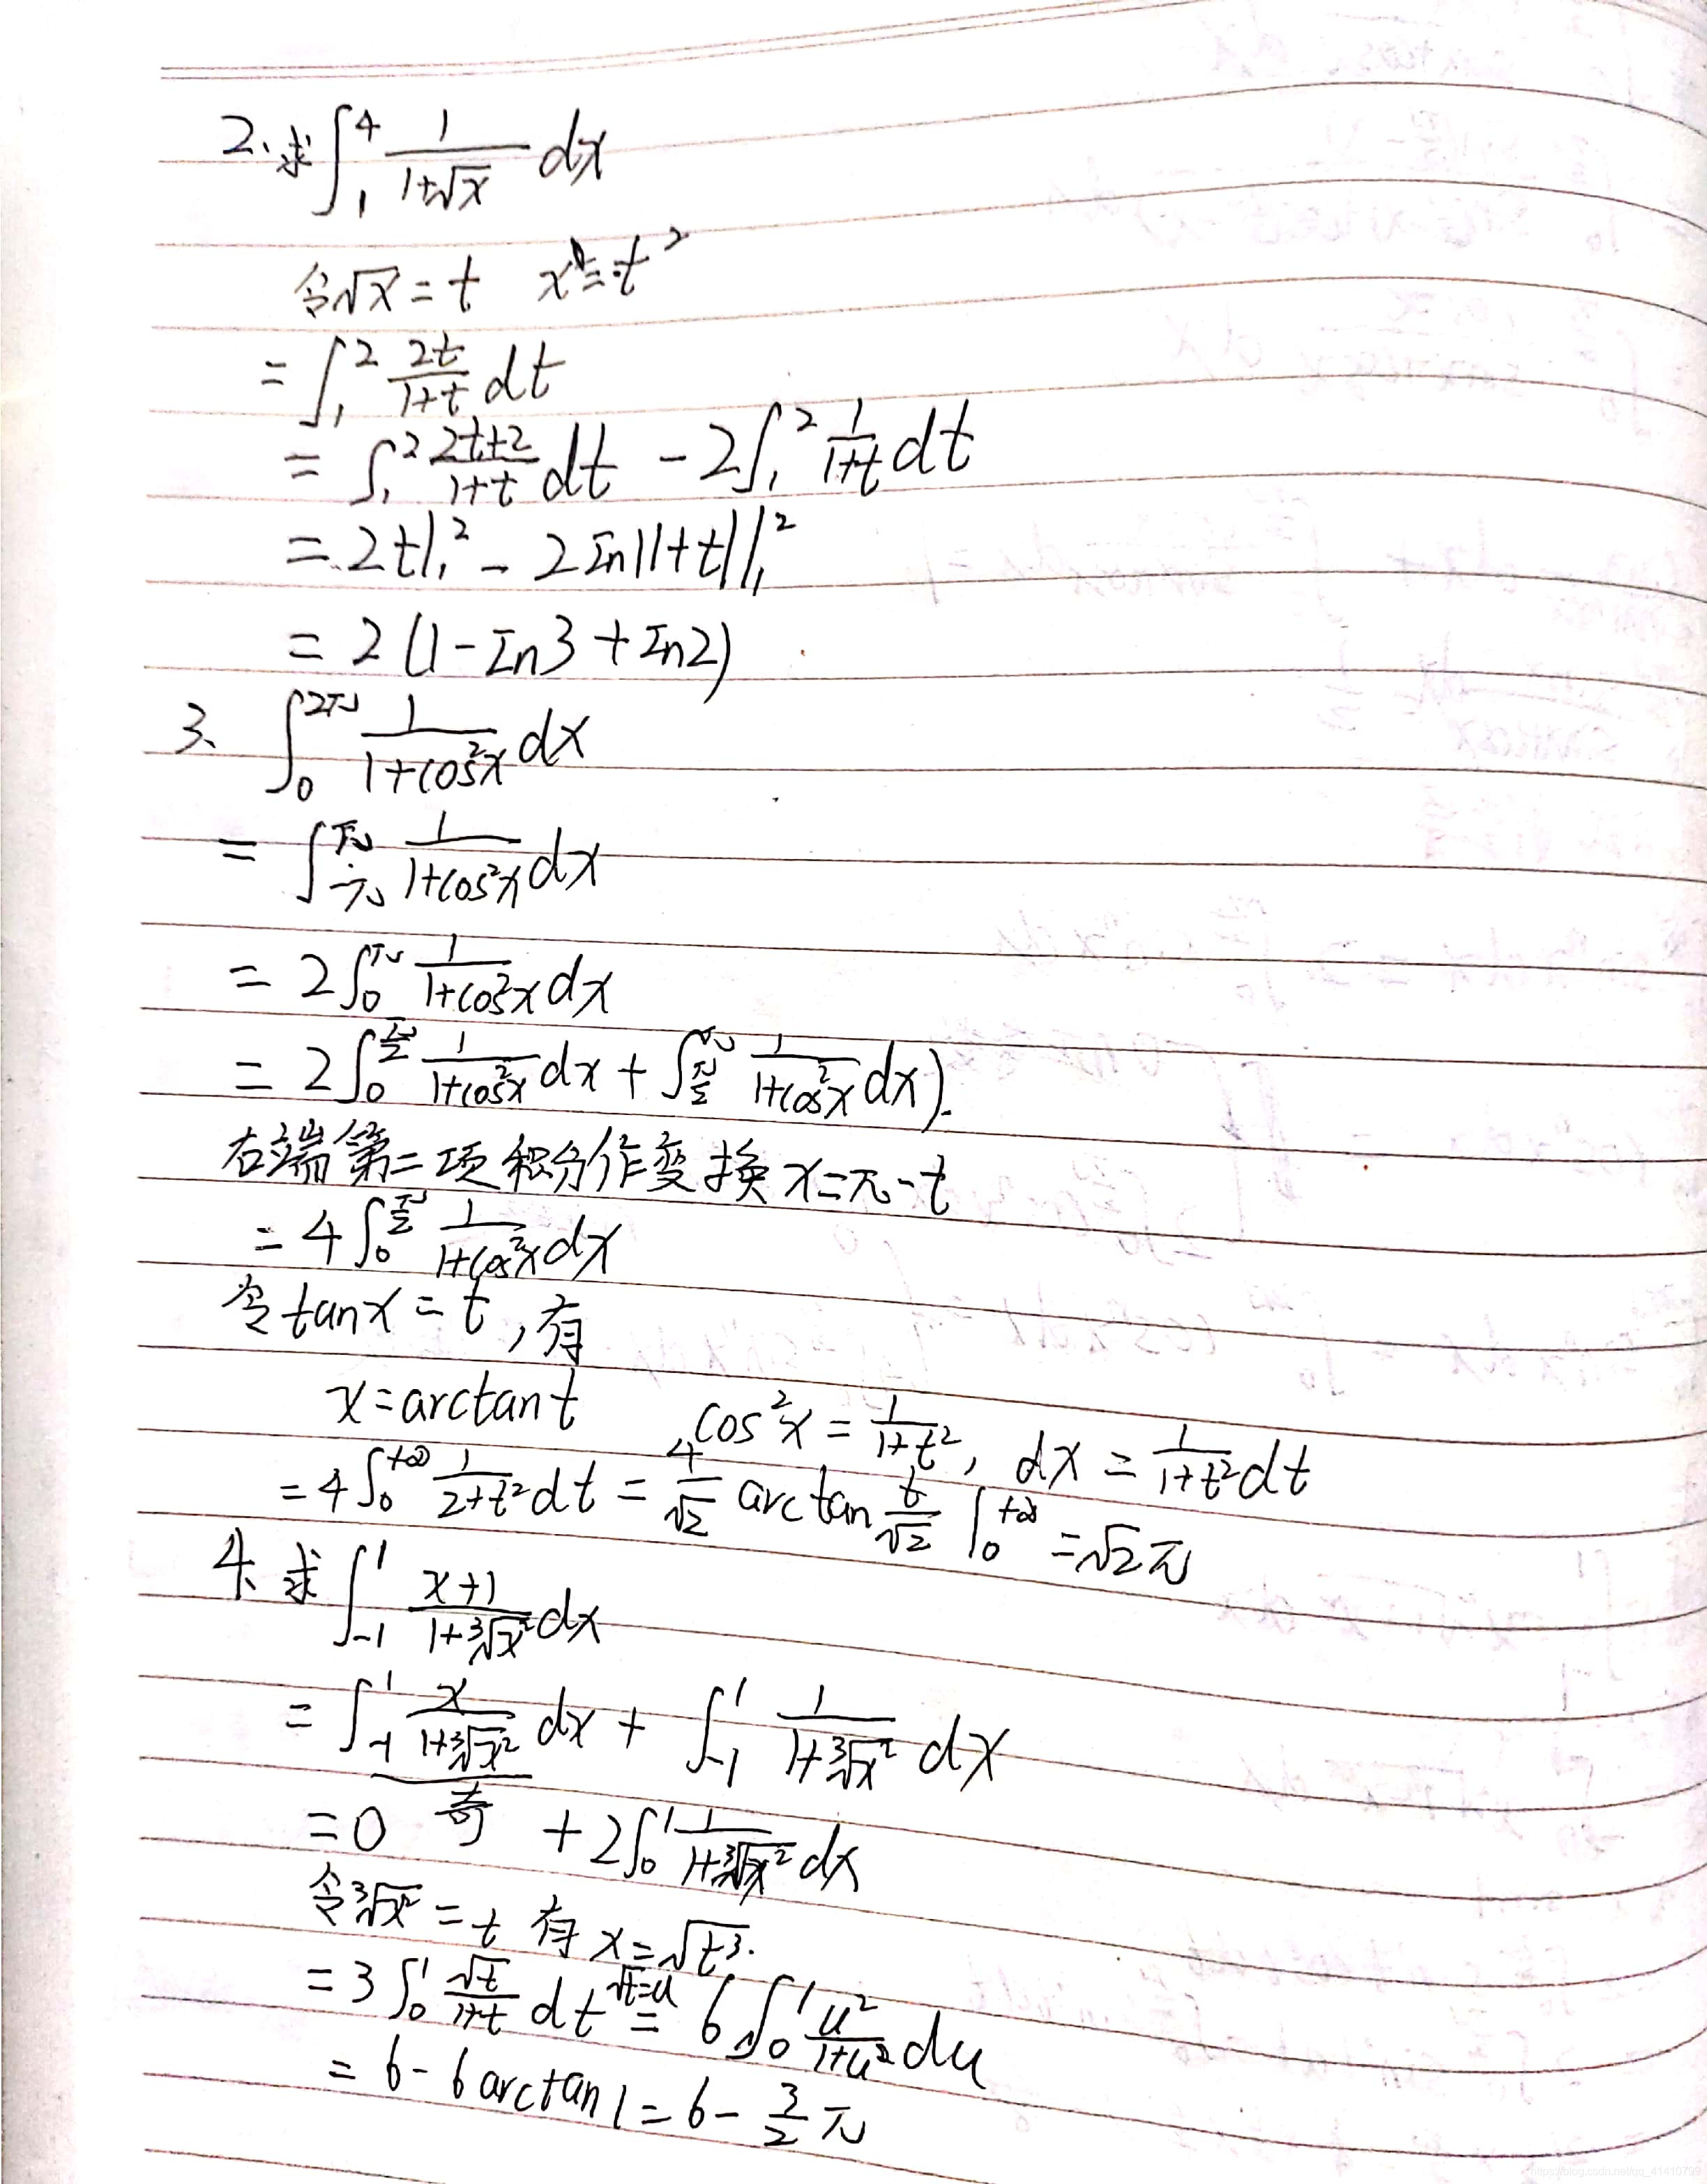 2、求∫₁⁴ 1/(1+√x) dx
令√x = t  x = t²
= ∫₁² 2t/(1+t) dt
= ∫₁² (2t+2)/(1+t) dt - 2∫₁² 1/(1+t) dt
= 2t|₁² - 2ln|1+t||₁²
= 2(1-ln3+ln2)
3、∫₀^(2π) 1/(1+cos²x) dx
= ∫_(-π)^(π) 1/(1+cos²x) dx
= 2∫₀^(π) 1/(1+cos²x) dx
= 2∫₀^(π/2) 1/(1+cos²x) dx + ∫_(π/2)^(π) 1/(1+cos²x) dx).
右端第二项积分作变换x=π-t
= 4∫₀^(π/2) 1/(1+cos²x) dx
令tanx = t,有
x=arctant  cos²x = 1/(1+t²), dx = 1/(1+t²) dt
= 4∫₀^(+∞) 1/(2+t²) dt = 4/√2 arctan t/√2 |₀^(+∞) = √2π
4、求∫₋₁¹ (x+1)/(1+³√x²) dx
= ∫₋₁¹ x/(1+³√x²) dx + ∫₋₁¹ 1/(1+³√x²) dx
=0 奇 + 2∫₀¹ 1/(1+³√x²) dx
令³√x² = t 有 x=√t³.
= 3∫₀¹ √t/(1+t) dt √t=u = 6∫₀¹ u²/(1+u²) du
= 6-6arctan1 = 6 - 3/2 π
https://blog.csdn.net/qq_41410799